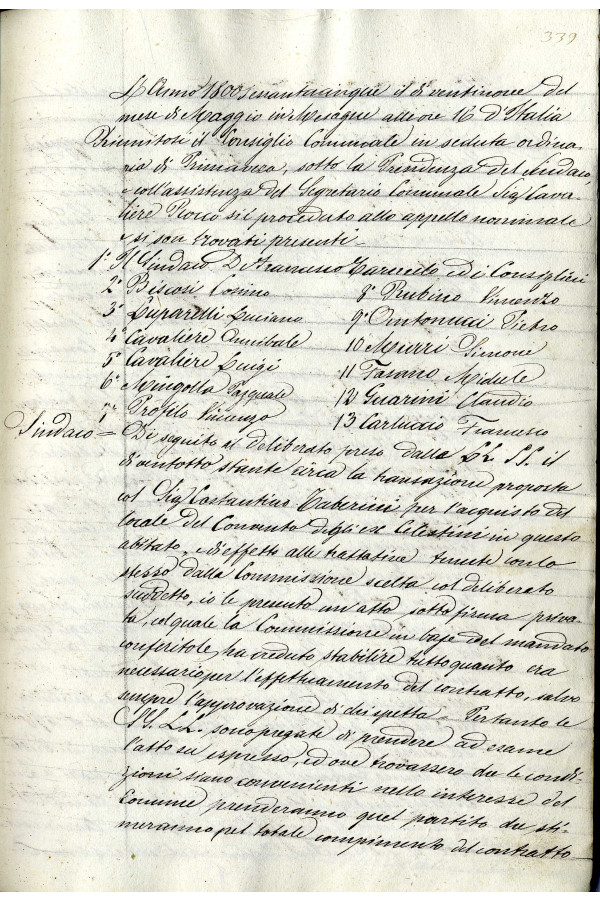 339
L'Anno 1800sessantacinque il dì ventinove del
mese di Maggio in Mesagne alle ore 16 d'Italia
Riunitosi il Consiglio Comunale in seduta ordina-
ria di Primavera, sotto la Presidenza del Sindaco,
e coll'assistenza del Segretario Comunale Sig Cava-
liere Rocco si è proceduto allo appello nominale
e si son trovati presenti.
1° Il Sindaco D. Cavaliere ed i Consiglieri
2° Biscosi Cosimo
3° Luparelli Luciano
4° Cavaliere Annibale
5° Cavaliere Luigi
6° Mingolla Pasquale
7° Profilo Vincenzo
8° Rubino Vincenzo
9° Antonucci Pietro
10 Murri Simone
11 Fasano Michele
12 Guarini Claudio
13 Carluccio Francesco
Sindaco =
Di seguito al deliberato preso dalle LL. SS. il
di ventotto stante circa la transazione proposta
col Sig Costantino Taberini per l'acquisto del
locale del Convento degli ex Celestini in questo
abitato, e di effetti alle trattative tenute con lo
stesso dalla Commissione scelta col deliberato
suddetto, io le presento un'atto sotto firma priva-
ta, col quale la Commissione in base del mandato
conferitole, ha creduto stabilire tutto quanto era
necessario per l'effettuamento del contratto, salvo
sempre l'approvazione di chi spetta. Pertanto le
SS. LL. sono pregate di prendere ad esame
l'atto su espresso, ed ove trovassero che le condi-
zioni siano convenienti nello interesse del
Comune prenderanno quel partito che sti-
meranno pel totale compimento del contratto